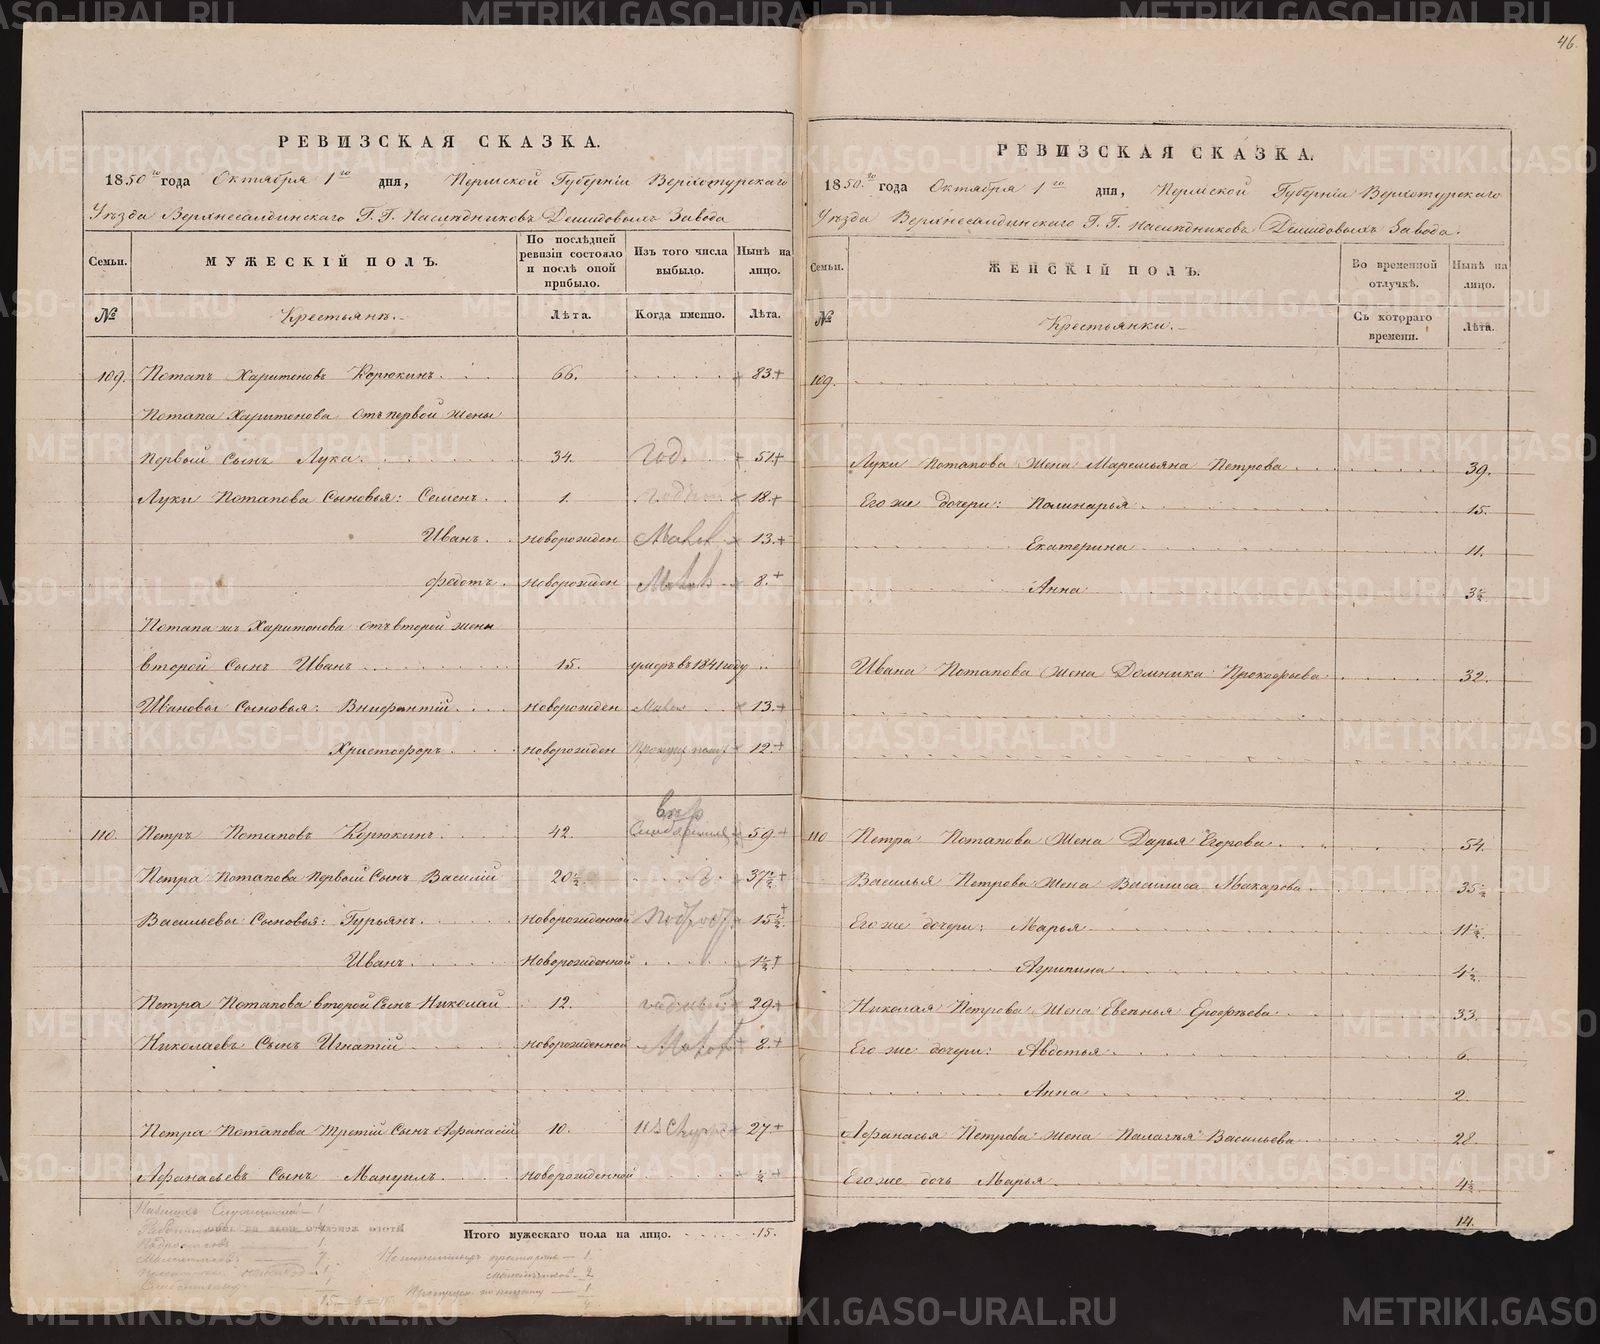 РЕВИЗСКАЯ СКАЗКА.
1850го года Октября 1го дня, Пермской Губерніи Верхотурскаго
Уѣзда Верхнесалдинскаго Г.Г. Наслѣдниковъ Демидовыхъ Завода
Семьи. МУЖЕСКІЙ ПОЛЪ. По послѣдней ревизіи состояло и послѣ оной прибыло. Изъ того числа выбыло. Нынѣ на лицо.
№ Крестьянъ. Лѣта. Когда именно. Лѣта.
109. Потапъ Харитоновъ Корюкинъ. 66. 83.+
Потапа Харитонова отъ первой жены
первый сынъ Лука. 34. год. 51+
Луки Потапова сыновья: Семенъ. 1. 18+
Иванъ. новорожден 13.+
Федотъ. новорожден 8.+
Потапа жъ Харитонова отъ второй жены
второй сынъ Иванъ 15. умеръ въ 1841 году
Ивановы сыновья: Внифантій. новорожден 13.+
Христофоръ. новорожден 12.+
110. Петръ Потаповъ Корюкинъ. 42. 59.+
Петра Потапова первый сынъ Василій 20½ 37½+
Васильевы сыновья: Гурьянъ. новорожденной 15½+
Иванъ. новорожденной 1½+
Петра Потапова второй сынъ Николай 12. годный 29+
Николаевъ сынъ Игнатій новорожденной 8.+
Петра Потапова третій сынъ Афанасій 10. 27+
Афанасьевъ сынъ Мануилъ. новорожденной ½+
Итого мужескаго пола на лицо. 15.
46.
РЕВИЗСКАЯ СКАЗКА.
1850.го года Октября 1го дня, Пермской Губерніи Верхотурскаго
Уѣзда Верхнесалдинскаго Г.Г. Наслѣдниковъ Демидовыхъ Завода.
Семьи. ЖЕНСКІЙ ПОЛЪ. Во временной отлучкѣ. Нынѣ на лицо.
№ Крестьянки. Съ котораго времени. Лѣта.
109.
Луки Потапова жена Маремьяна Петрова 39.
Его же дочери: Полинарья 15.
Екатерина 11.
Анна 3½
Ивана Потапова жена Домника Прокофьева 32.
110 Петра Потапова жена Дарья Егорова 54.
Василья Петрова жена Василиса Макарова 35½
Его же дочери: Марья 11½
Агрипина 4½
Николая Петрова жена Евгенья Ерофѣева 33.
Его же дочери: Авдотья 6.
Анна 2.
Афанасья Петрова жена Палагѣя Васильева 28
Его же дочь Марья 4½
14.
METRIKI.GASO-URAL.RU